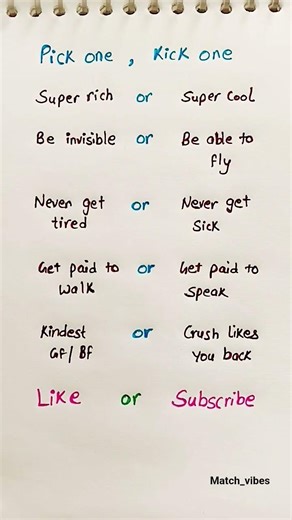 Pick one , Kick one
Super rich or Super Cool
Be invisible or Be able to
fly
Never get or Never get
tired Sick
Get paid to or Get paid to
walk speak
Kindest or Crush likes
GF/BF You back
Like or Subscribe
Match_vibes